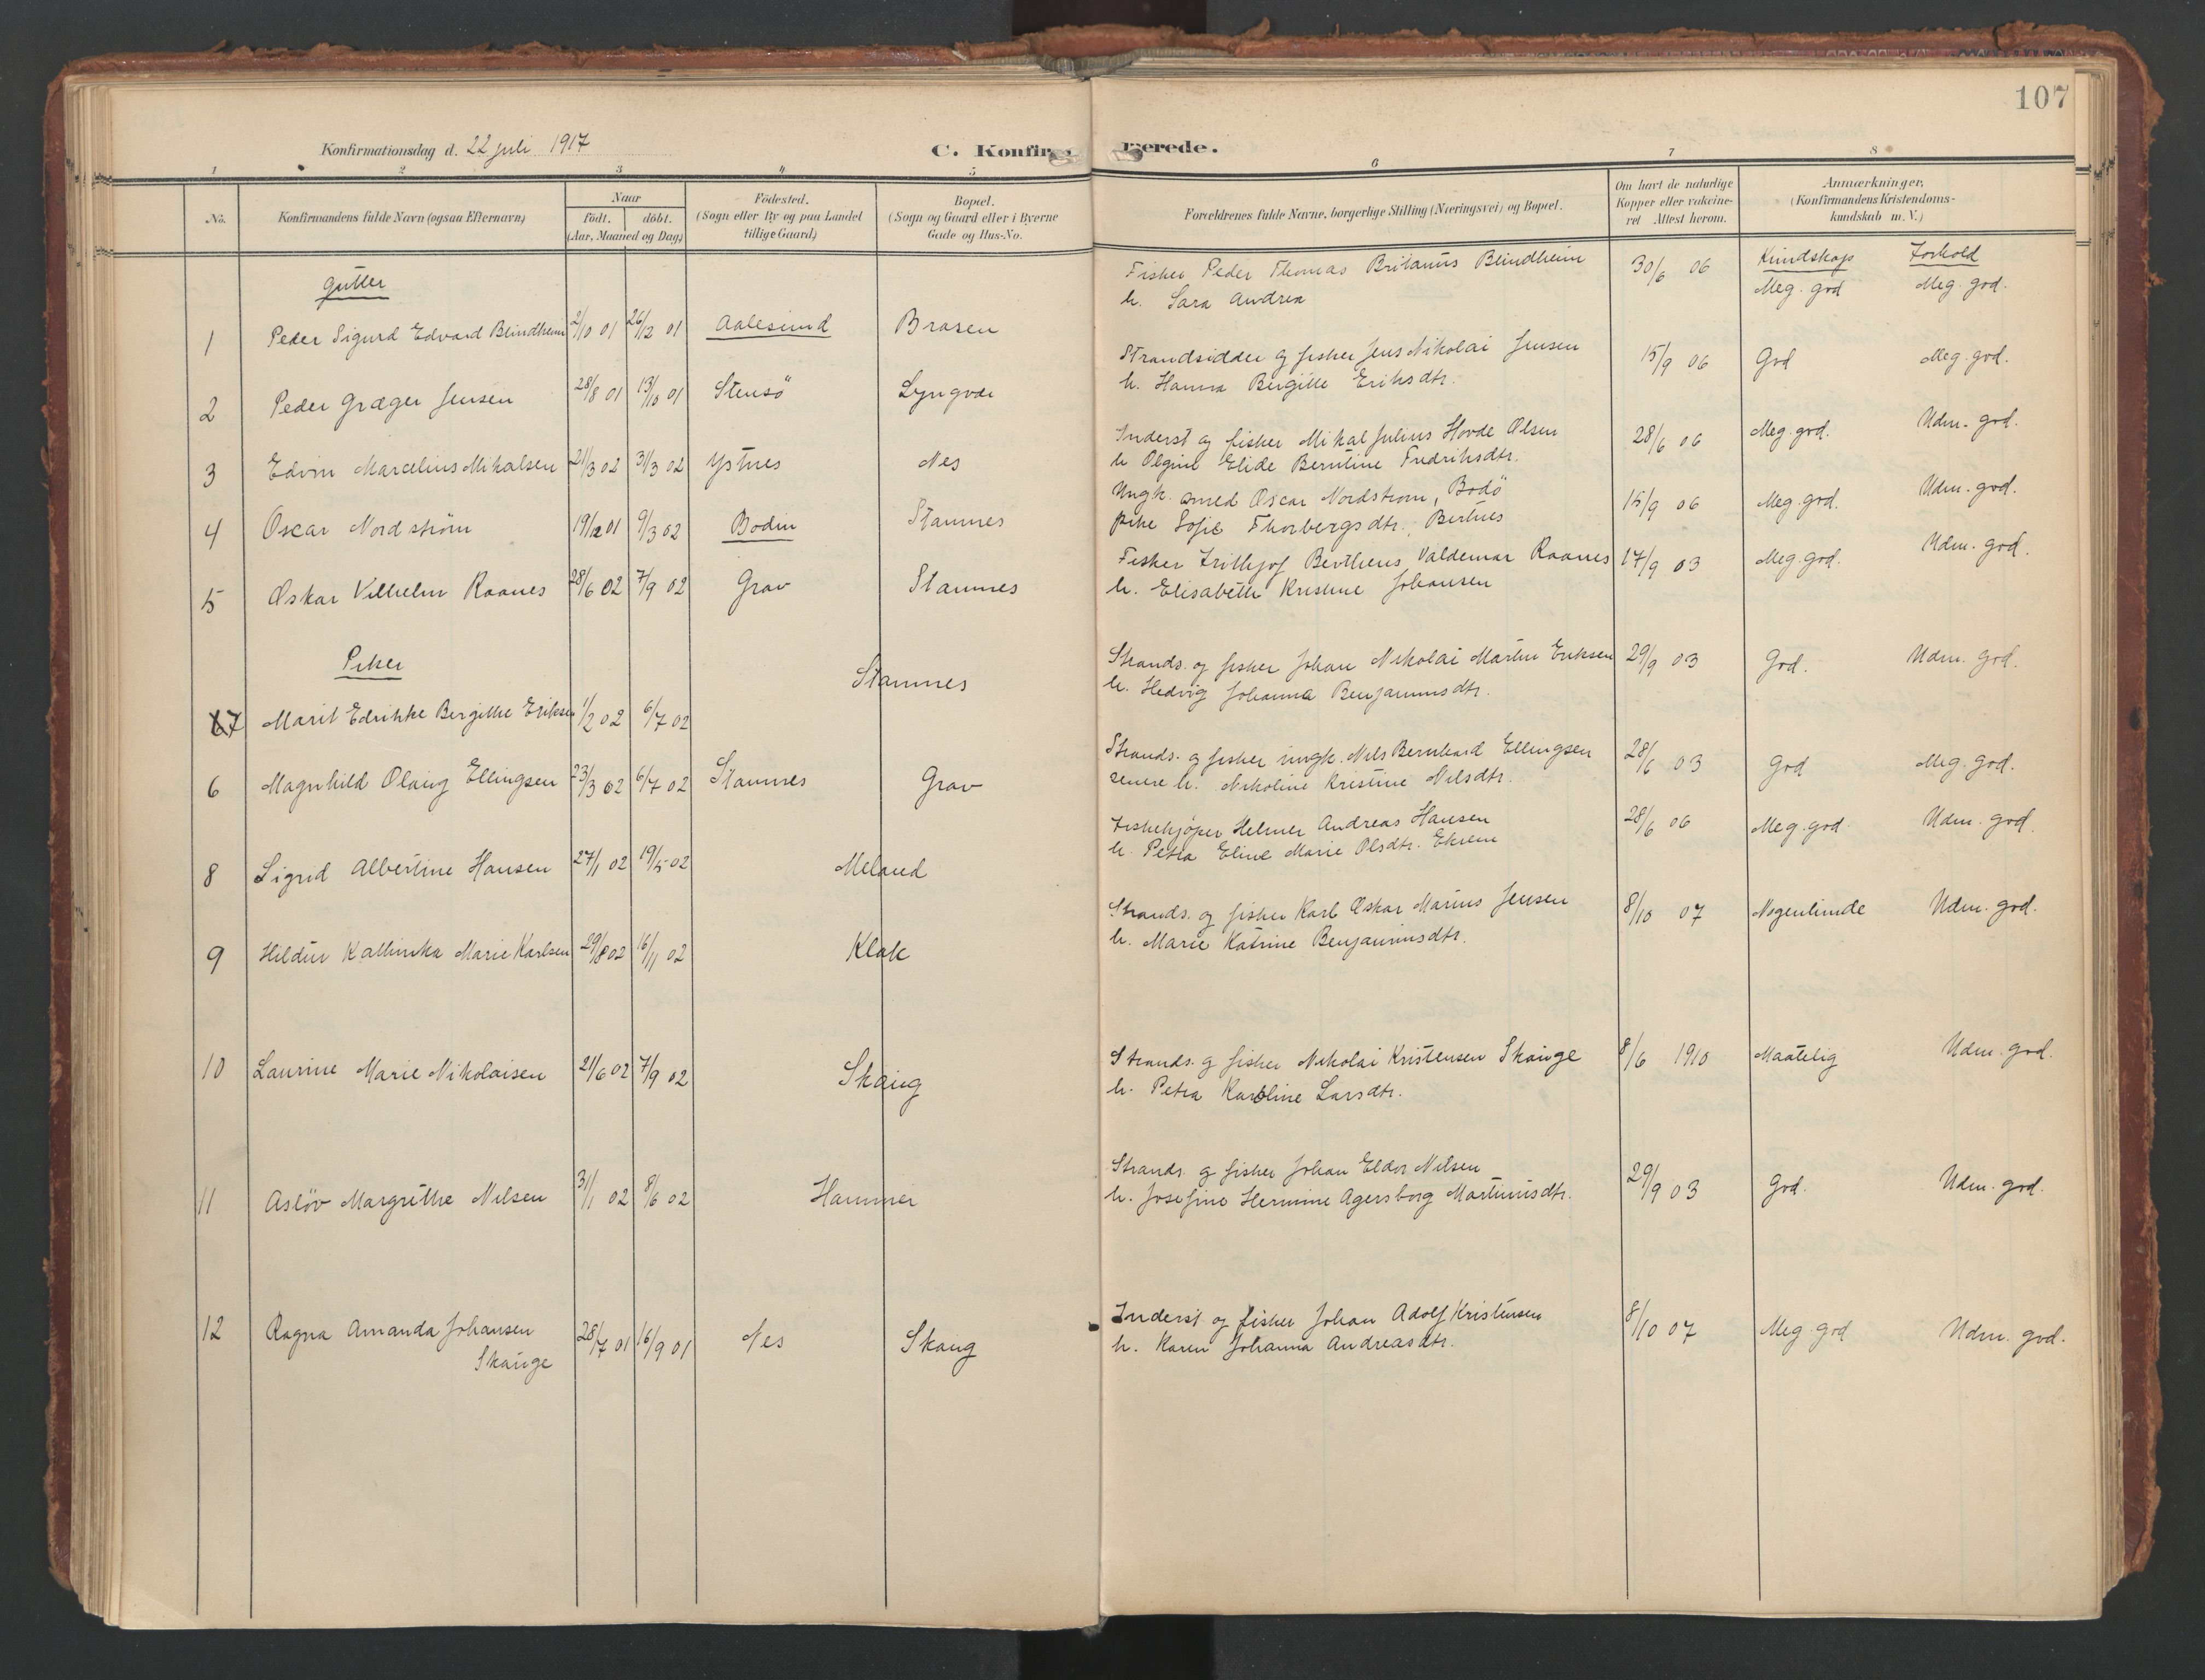 107
Konfirmationsdag d. 22 juli 1917
C. Konfirmerede.
1 2 3 4 5 6 7 8
No.
Konfirmandens fulde Navn (ogsaa Efternavn)
Naar
født. døbt.
(Aar, Maaned og Dag)
Fødested.
(Sogn eller By og paa Landet
tillige Gaard)
Bopæl.
(Sogn og Gaard eller i Byerne
Gade og Hus-No.
Forældrenes fulde Navne, borgerlige Stilling (Næringsvei) og Bopæl.
Om havt de naturlige
Kopper eller vakcine-
ret Attest herom.
Anmærkninger.
(Konfirmandens Kristendoms-
kundskab m. V.)
Kundskap Forhold
Gutter
1 Peder Sigurd Edvard Blindheim 2/10 01 26/12 01 Aalesund Brasen
Fisker Peder Thomas Britanus Blindheim 30/6 06 Meg. god Meg. god.
h. Sara Andrea
2 Peder Græger Jensen 28/8 01 13/10 01 Stensö Lyngvær
Strandsidder og fisker Jens Nikolai Jensen 15/9 06 God Meg. god.
h. Hanna Bergitte Eriksdtr.
3 Edvin Marcelius Mikalsen 21/3 02 31/3 02 Ystnes Nes
Inderst og fisker Mikal Julius Hovde Olsen 28/6 06 Meg. god. Udm. god.
h Olgine Elide Berntine Fredriksdtr.
4 Oscar Nordstrøm 19/12 01 9/3 02 Bodin Stamnes
Ungk. smed Oscar Nordstrøm, Bodö 15/9 06 Meg. god. Udm. god.
pike Sofie Thorbergsdtr. Bertnes
5 Oskar Vilhelm Raanes 28/6 02 7/9 02 Grav Stamnes
Fisker Frithjof Berthens Valdemar Raanes 17/9 03 Meg. god. Udm. god.
h. Elisabeth Kristine Johansen
Piker
7 Marit Edrikke Bergitte Eriksen 1/2 02 6/7 02 Stamnes
Strands. og fisker Johan Nikolai Martin Eriksen 29/9 03 God. Udm. god.
h. Hedvig Johanna Benjaminsdtr.
6 Magnhild Olaug Ellingsen 23/3 02 6/7 02 Stamnes Grav
Strands. og fisker ungk. Nils Bernhard Ellingsen 28/6 03 God Meg. god.
senere h. Nikoline Kristine Nilsdtr.
8 Sigrid Albertine Hansen 27/1 02 19/5 02 Meland
Fiskekjöper Helmer Andreas Hansen 28/6 06 Meg. god. Udm. god.
h. Petra Eline Marie Olsdtr. Ekrem
9 Hildur Kathinka Marie Karlsen 29/8 02 16/11 02 Klak
Strands. og fisker Karl Oskar Marius Jensen 8/10 07 Nogenlunde Udm. god.
h. Marie Katrine Benjaminsdtr.
10 Laurine Marie Nikolaisen 21/6 02 7/9 02 Skaug
Strands. og fisker Nikolai Kristensen Skauge 8/6 1910 Maatelig Udm. god.
h. Petra Karoline Larsdtr.
11 Asløv Margrethe Nilsen 31/1 02 8/6 02 Hammer
Strands. og fisker Johan Eldor Nilsen 29/9 03 God. Udm. god.
h. Josefine Hermine Agersborg Martinusdtr.
12 Ragna Amanda Johansen 28/7 01 16/9 01 Nes Skaug
Skauge
Inderst og fisker Johan Adolf Kristensen 8/10 07 Meg. god Udm. god.
h. Karen Johanna Andreasdtr.